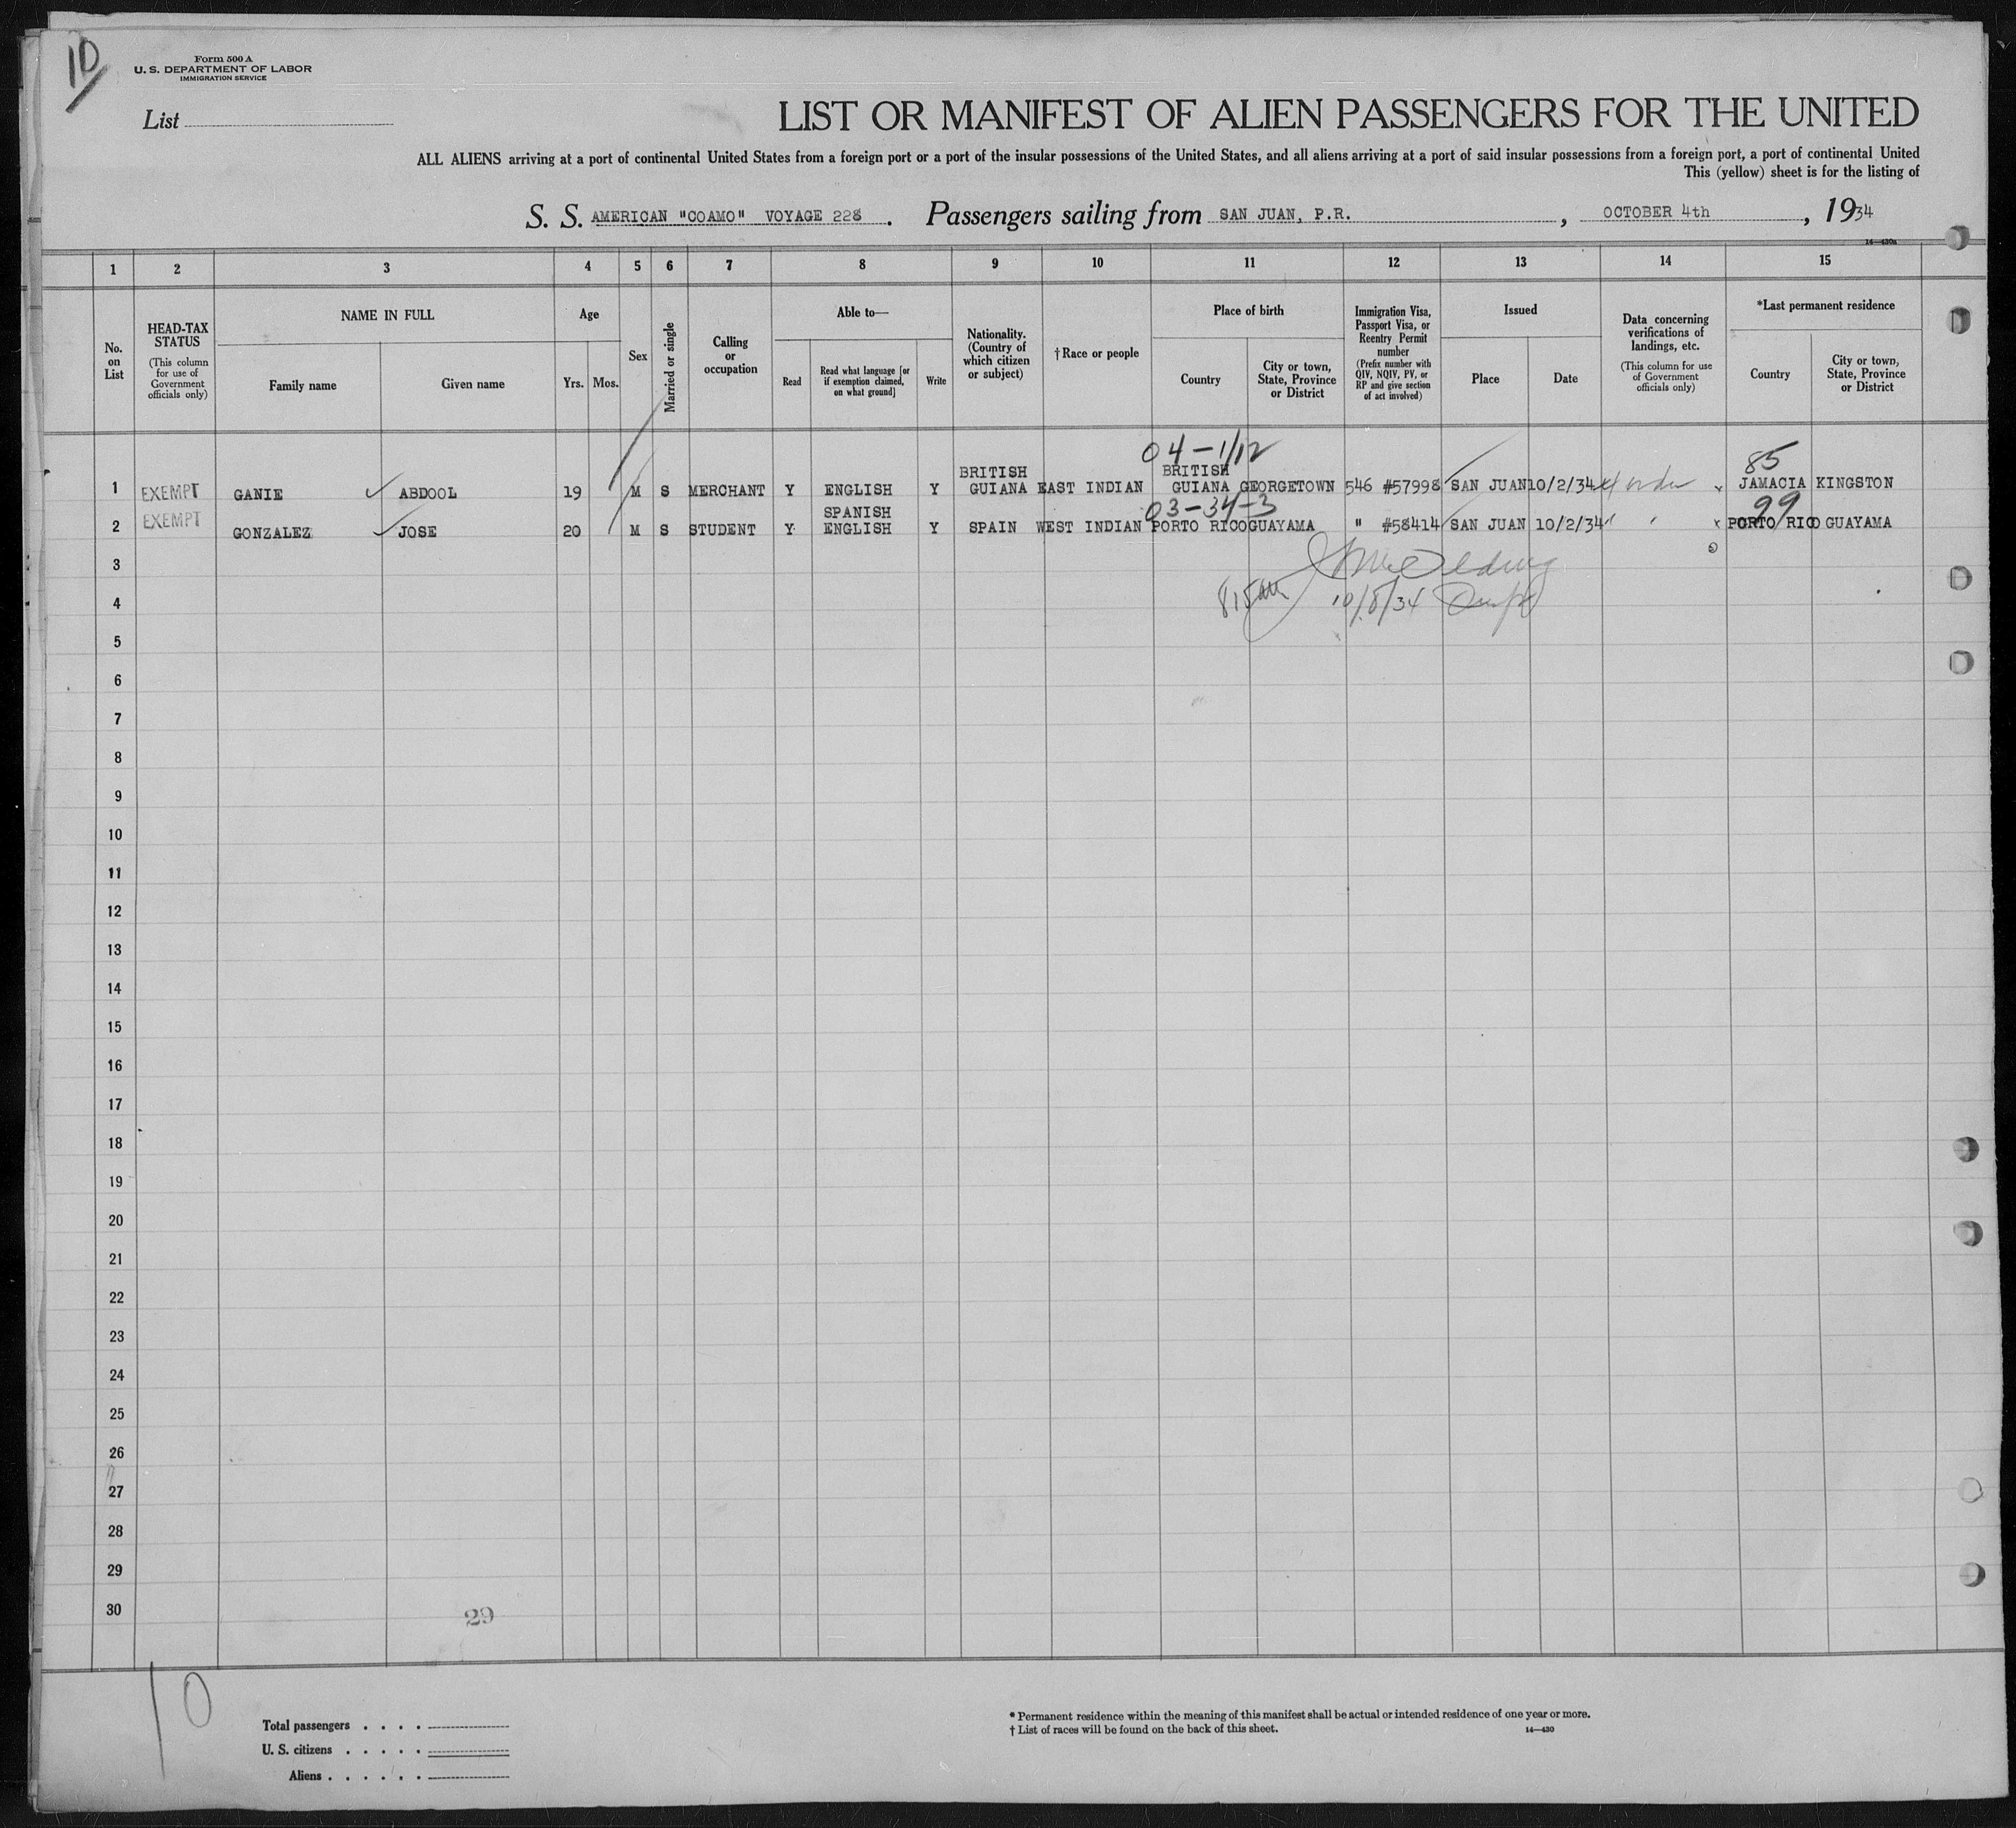 10
Form 500 A
U. S. DEPARTMENT OF LABOR
IMMIGRATION SERVICE
List
LIST OR MANIFEST OF ALIEN PASSENGERS FOR THE UNITED
ALL ALIENS arriving at a port of continental United States from a foreign port or a port of the insular possessions of the United States, and all aliens arriving at a port of said insular possessions from a foreign port, a port of continental United
This (yellow) sheet is for the listing of
S. S. AMERICAN "COAMO" VOYAGE 228. Passengers sailing from SAN JUAN, P.R., OCTOBER 4th, 1934
14—430a
1 2 3 4 5 6 7 8 9 10 11 12 13 14 15
No. on List
HEAD-TAX STATUS
(This column for use of Government officials only)
NAME IN FULL
Family name
Given name
Age
Yrs. Mos.
Sex
Married or single
Calling or occupation
Able to—
Read
Read what language [or if exemption claimed, on what ground]
Write
Nationality. (Country of which citizen or subject)
†Race or people
Place of birth
Country
City or town, State, Province or District
Immigration Visa, Passport Visa, or Reentry Permit number
(Prefix number with QIV, NQIV, PV, or RP and give section of act involved)
Issued
Place
Date
Data concerning verifications of landings, etc.
(This column for use of Government officials only)
*Last permanent residence
Country
City or town, State, Province or District
04-1/12
85
BRITISH BRITISH
1 EXEMPT GANIE ABDOOL 19 M S MERCHANT Y ENGLISH Y GUIANA EAST INDIAN GUIANA GEORGETOWN 546 #57998 SAN JUAN 10/2/34 JAMACIA KINGSTON
SPANISH 03-34-3 99
2 EXEMPT GONZALEZ JOSE 20 M S STUDENT Y ENGLISH Y SPAIN WEST INDIAN PORTO RICO GUAYAMA " #58414 SAN JUAN 10/2/34 PORTO RICO GUAYAMA
3
4 10/8/34
5
6
7
8
9
10
11
12
13
14
15
16
17
18
19
20
21
22
23
24
25
26
27
28
29
30
29
10
Total passengers . . . .
U. S. citizens . . . . .
Aliens . . . . . .
* Permanent residence within the meaning of this manifest shall be actual or intended residence of one year or more.
† List of races will be found on the back of this sheet.
14—430